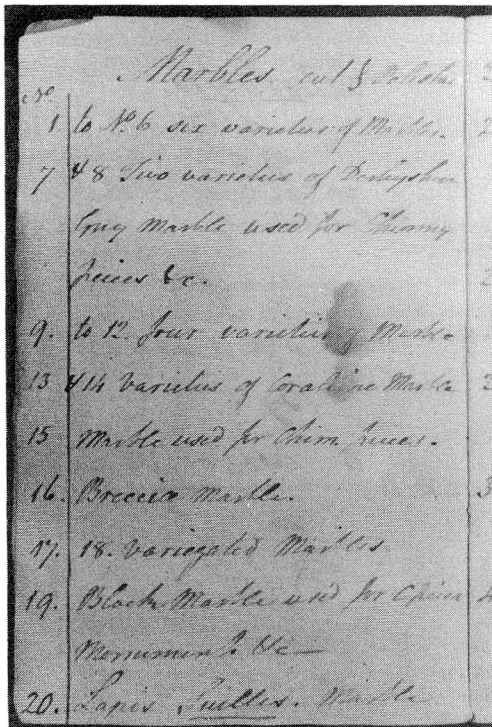 Marbles cut & Polished
No
1 to No. 6 six varieties of Marble.
7 & 8 Two varieties of Derbyshire
Grey Marble used for Chimney
pieces &c.
9. to 12 four varieties of Marble
13 & 14 Varieties of Coralline Marble
15 Marble used for Chim. pieces.
16. Breccia Marble.
17. 18. Variegated Marbles
19. Black Marble used for
Monuments &c—
20. Lapis Marble